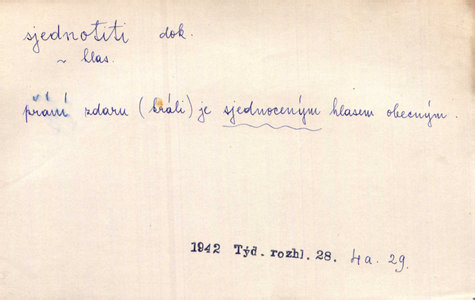 sjednotiti dok.
~ hlas.
přání zdaru (králi) je sjednoceným hlasem obecným.
1942 Týd. rozhl. 28. 4a. 29.